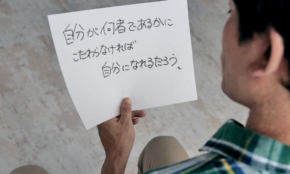 自分が何者であるかに
こだわらなければ
自分になれるだろう、